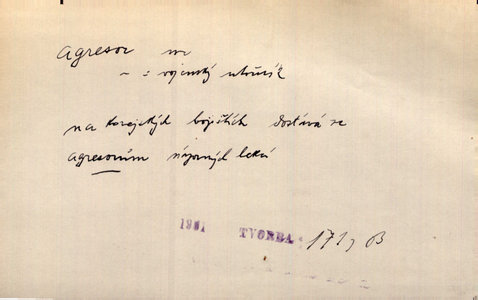 agresor
~ = vojenský útočník
na korejských bojištích dostává se
agresorům názorných lekcí
TVORBA 171,